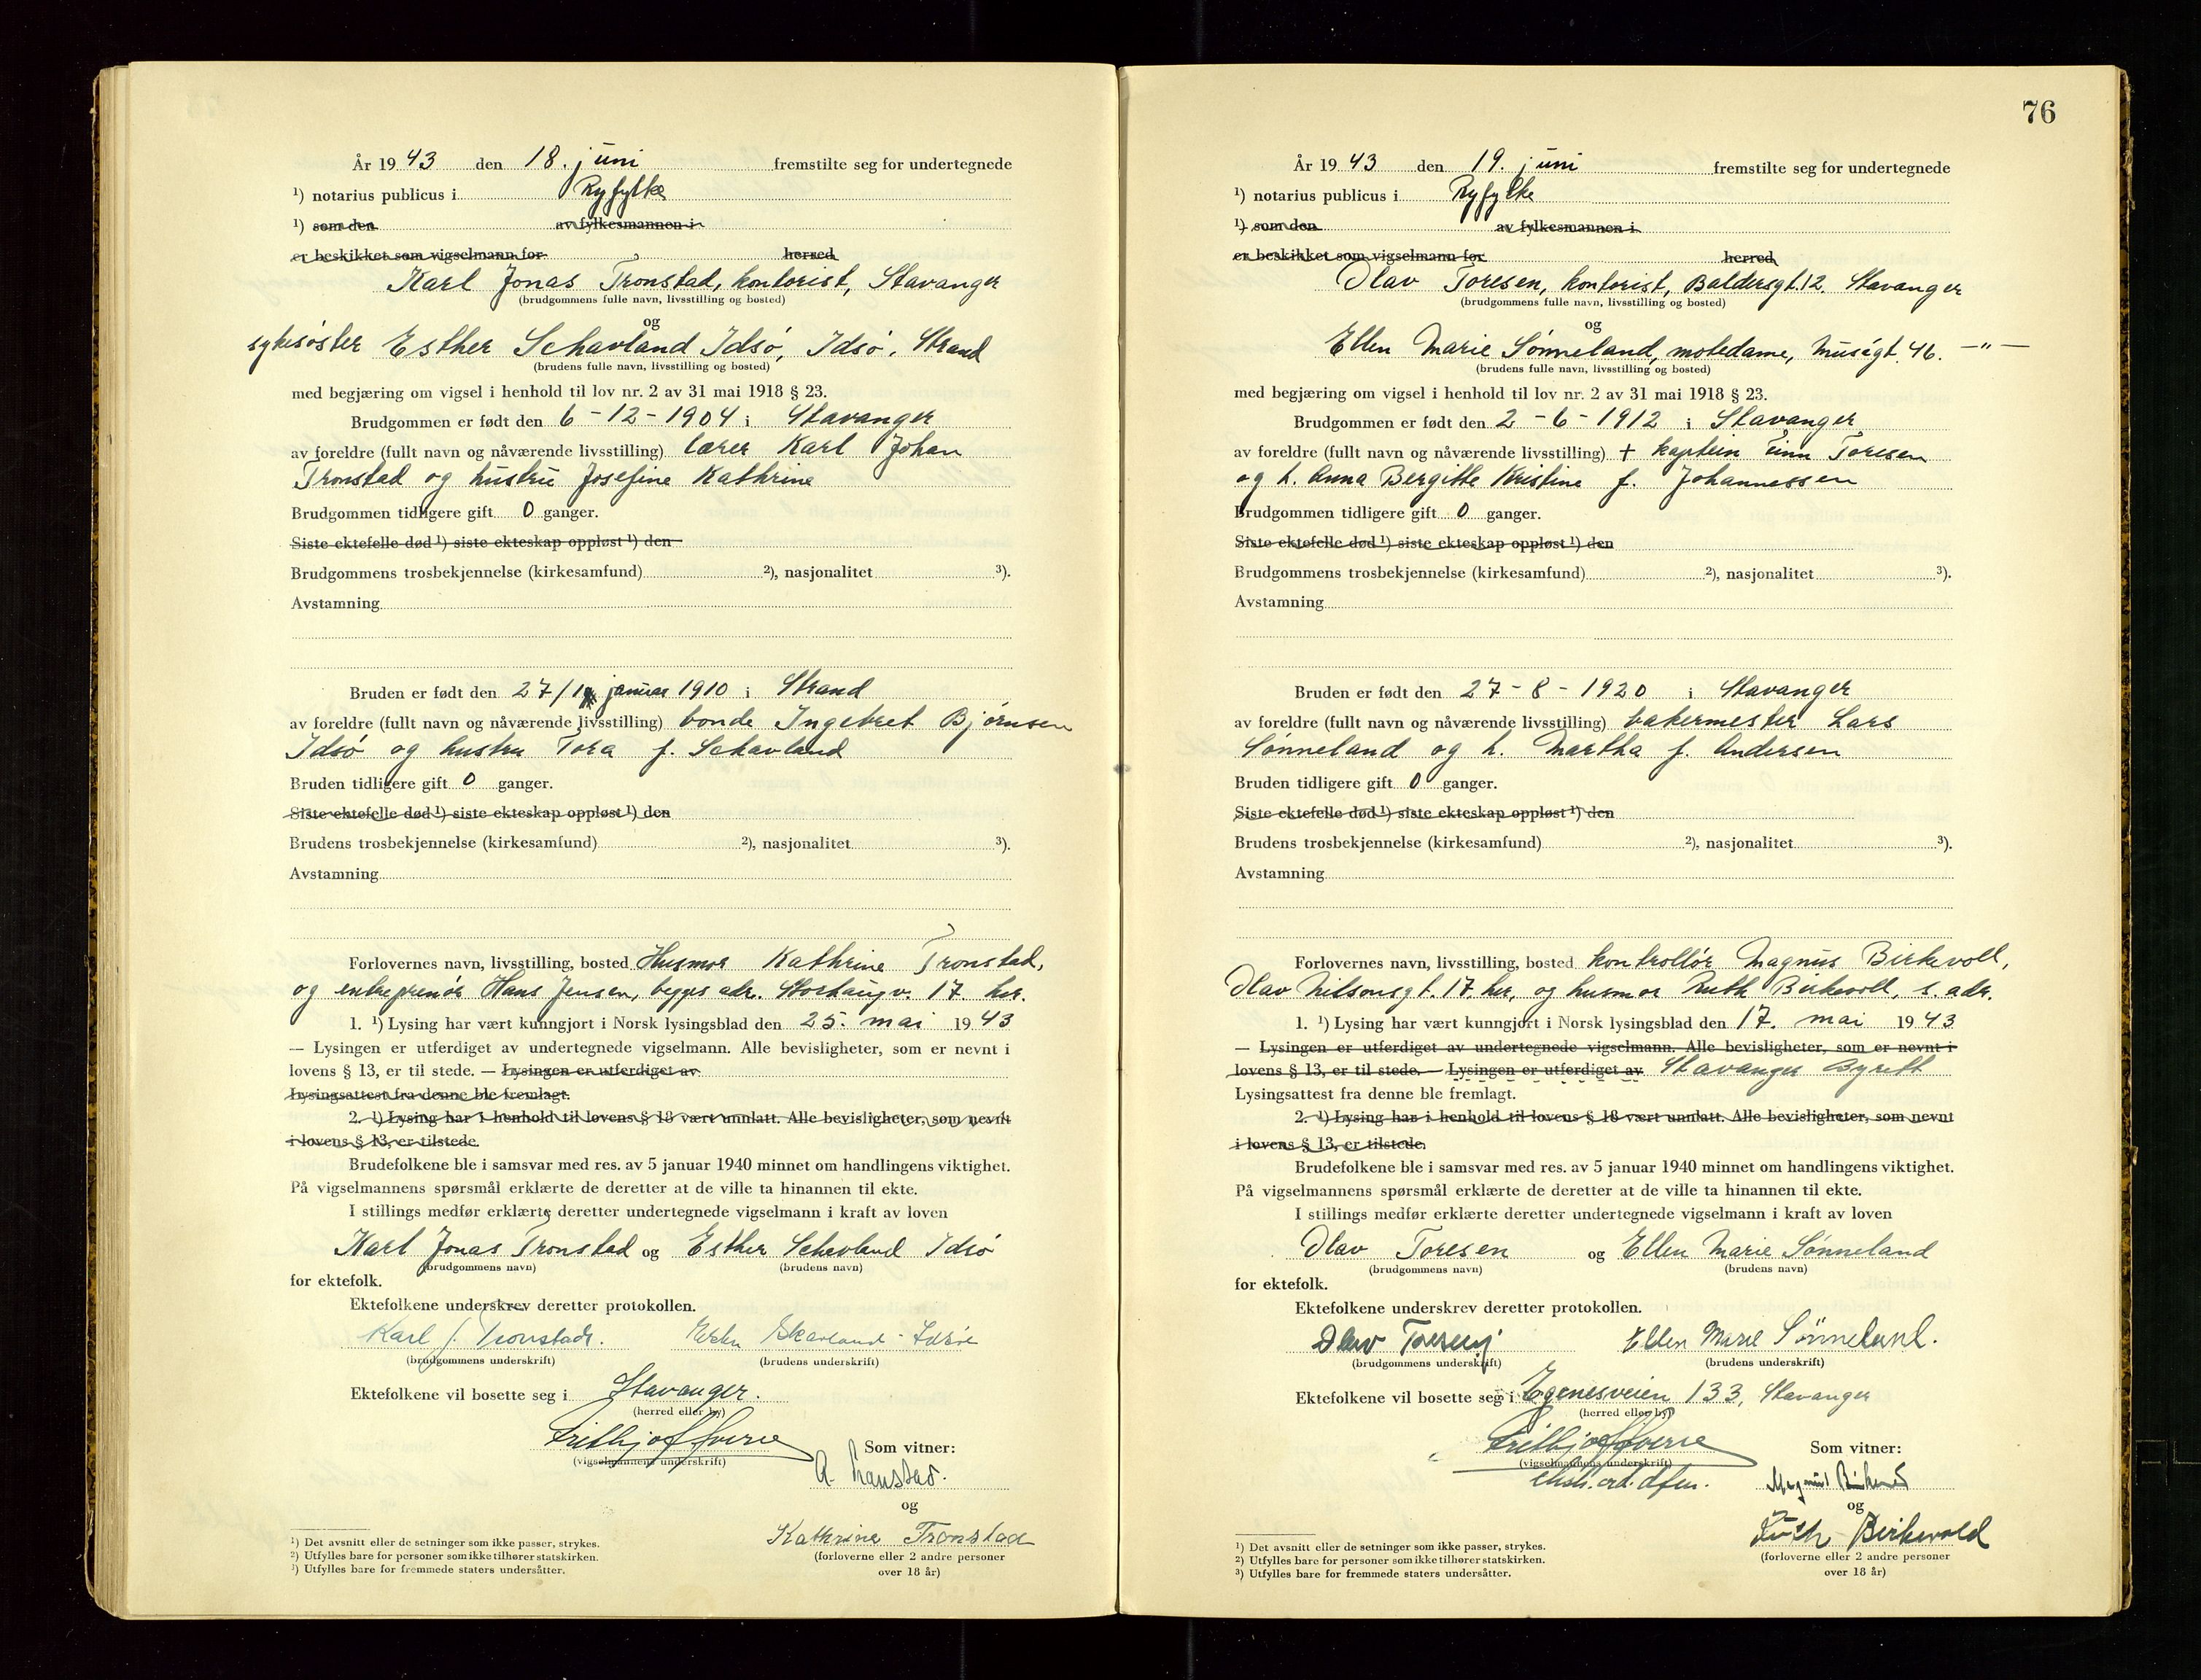 År 1943 den 18. juni fremstilte seg for undertegnede
¹) notarius publicus i Ryfylke
¹) som den av fylkesmannen i
er beskikket som vigselmann for herred
Karl Jonas Tronstad, kontorist, Stavanger
(brudgommens fulle navn, livsstilling og bosted)
og
sykesøster Esther Schavland Idsø, Idsø, Strand
(brudens fulle navn, livsstilling og bosted)
med begjæring om vigsel i henhold til lov nr. 2 av 31 mai 1918 § 23.
Brudgommen er født den 6-12-1904 i Stavanger
av foreldre (fullt navn og nåværende livsstilling) lærer Karl Johan
Tronstad og hustru Josefine Kathrine
Brudgommen tidligere gift 0 ganger.
Siste ektefelle død ¹) siste ekteskap oppløst ¹) den
Brudgommens trosbekjennelse (kirkesamfund) ²), nasjonalitet ³).
Avstamning
Bruden er født den 27/1 januar 1910 i Strand
av foreldre (fullt navn og nåværende livsstilling) bonde Ingebret Bjørnsen
Idsø og hustru Tora f. Schavland
Bruden tidligere gift 0 ganger.
Siste ektefelle død ¹) siste ekteskap oppløst ¹) den
Brudens trosbekjennelse (kirkesamfund) ²), nasjonalitet ³).
Avstamning
Forlovernes navn, livsstilling, bosted Husmor Kathrine Tronstad,
og entreprenør Hans Jensen, begges adr. Storhaugv. 17 her.
1. ¹) Lysing har vært kunngjort i Norsk lysingsblad den 25. mai 1943
— Lysingen er utferdiget av undertegnede vigselmann. Alle bevisligheter, som er nevnt i
lovens § 13, er til stede. — Lysingen er utferdiget av
Lysingsattest fra denne ble fremlagt.
2. ¹) Lysing har i henhold til lovens § 18 vært unnlatt. Alle bevisligheter, som nevnt
i lovens § 13, er tilstede.
Brudefolkene ble i samsvar med res. av 5 januar 1940 minnet om handlingens viktighet.
På vigselmannens spørsmål erklærte de deretter at de ville ta hinannen til ekte.
I stillings medfør erklærte deretter undertegnede vigselmann i kraft av loven
Karl Jonas Tronstad og Esther Schavland Idsø
(brudgommens navn) (brudens navn)
for ektefolk.
Ektefolkene underskrev deretter protokollen.
Karl J. Tronstad. Esther Skavland-Idsøe
(brudgommens underskrift) (brudens underskrift)
Ektefolkene vil bosette seg i Stavanger.
(herred eller by)
Som vitner:
(vigselmannens underskrift)
A Transtad.
og
Kathrine Tronstad
(forloverne eller 2 andre personer
over 18 år)
¹) Det avsnitt eller de setninger som ikke passer, strykes.
²) Utfylles bare for personer som ikke tilhører statskirken.
³) Utfylles bare for fremmede staters undersåtter.
76
År 1943 den 19. juni fremstilte seg for undertegnede
¹) notarius publicus i Ryfylke
¹) som den av fylkesmannen i
er beskikket som vigselmann for herred
Olav Toresen, kontorist, Baldersgt. 12. Stavanger
(brudgommens fulle navn, livsstilling og bosted)
og
Ellen Marie Sønneland, motedame, Musègt. 46. —"—
(brudens fulle navn, livsstilling og bosted)
med begjæring om vigsel i henhold til lov nr. 2 av 31 mai 1918 § 23.
Brudgommen er født den 2-6-1912 i Stavanger
av foreldre (fullt navn og nåværende livsstilling) + kaptein Finn Toresen
og h. Anna Bergitte Kristine f. Johannessen
Brudgommen tidligere gift 0 ganger.
Siste ektefelle død ¹) siste ekteskap oppløst ¹) den
Brudgommens trosbekjennelse (kirkesamfund) ²), nasjonalitet ³).
Avstamning
Bruden er født den 27-8-1920 i Stavanger
av foreldre (fullt navn og nåværende livsstilling) bakermester Lars
Sønneland og h. Martha f. Andersen
Bruden tidligere gift 0 ganger.
Siste ektefelle død ¹) siste ekteskap oppløst ¹) den
Brudens trosbekjennelse (kirkesamfund) ²), nasjonalitet ³).
Avstamning
Forlovernes navn, livsstilling, bosted kontrollør Magnus Birkevoll,
Olav Nilsonsgt. 17. her, og husmor Ruth Birkevoll, s. adr.
1. ¹) Lysing har vært kunngjort i Norsk lysingsblad den 17. mai 1943
— Lysingen er utferdiget av undertegnede vigselmann. Alle bevisligheter, som er nevnt i
lovens § 13, er til stede. — Lysingen er utferdiget av Stavanger Byrett
Lysingsattest fra denne ble fremlagt.
2. ¹) Lysing har i henhold til lovens § 18 vært unnlatt. Alle bevisligheter, som nevnt
i lovens § 13, er tilstede.
Brudefolkene ble i samsvar med res. av 5 januar 1940 minnet om handlingens viktighet.
På vigselmannens spørsmål erklærte de deretter at de ville ta hinannen til ekte.
I stillings medfør erklærte deretter undertegnede vigselmann i kraft av loven
Olav Toresen og Ellen Marie Sønneland
(brudgommens navn) (brudens navn)
for ektefolk.
Ektefolkene underskrev deretter protokollen.
Olav Toresen Ellen Marie Sønneland.
(brudgommens underskrift) (brudens underskrift)
Ektefolkene vil bosette seg i Egenesveien 133, Stavanger
(herred eller by)
Som vitner:
(vigselmannens underskrift)
Magnus Birkevold
og
Ruth Birkevold
(forloverne eller 2 andre personer
over 18 år)
¹) Det avsnitt eller de setninger som ikke passer, strykes.
²) Utfylles bare for personer som ikke tilhører statskirken.
³) Utfylles bare for fremmede staters undersåtter.